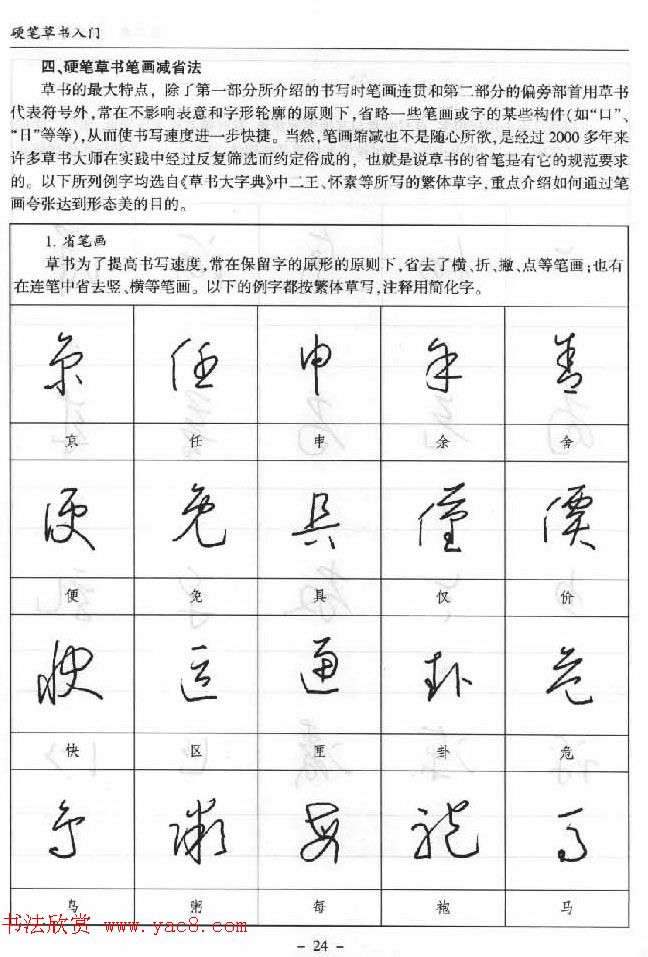 硬笔草书入门
四、硬笔草书笔画减省法
草书的最大特点，除了第一部分所介绍的书写时笔画连贯和第二部分的偏旁部首用草书
代表符号外，常在不影响表意和字形轮廓的原则下，省略一些笔画或字的某些构件(如“口”、
“日”等等)，从而使书写速度进一步快捷。当然，笔画缩减也不是随心所欲，是经过2000多年来
许多草书大师在实践中经过反复筛选而约定俗成的，也就是说草书的省笔是有它的规范要求
的。以下所列例字均选自《草书大字典》中二王、怀素等所写的繁体草字，重点介绍如何通过笔
画夸张达到形态美的目的。
1. 省笔画
草书为了提高书写速度，常在保留字的原形的原则下，省去了横、折、撇、点等笔画；也有
在连笔中省去竖、横等笔画。以下的例字都按繁体草写，注释用简化字。
京 任 申 余 舍
京 任 申 余 舍
便 免 具 僅 價
便 免 具 仅 价
快 區 匣 卦 危
快 区 匣 卦 危
鳥 粥 每 袍 馬
鸟 粥 每 袍 马
书法欣赏 www.yac8.com
- 24 -